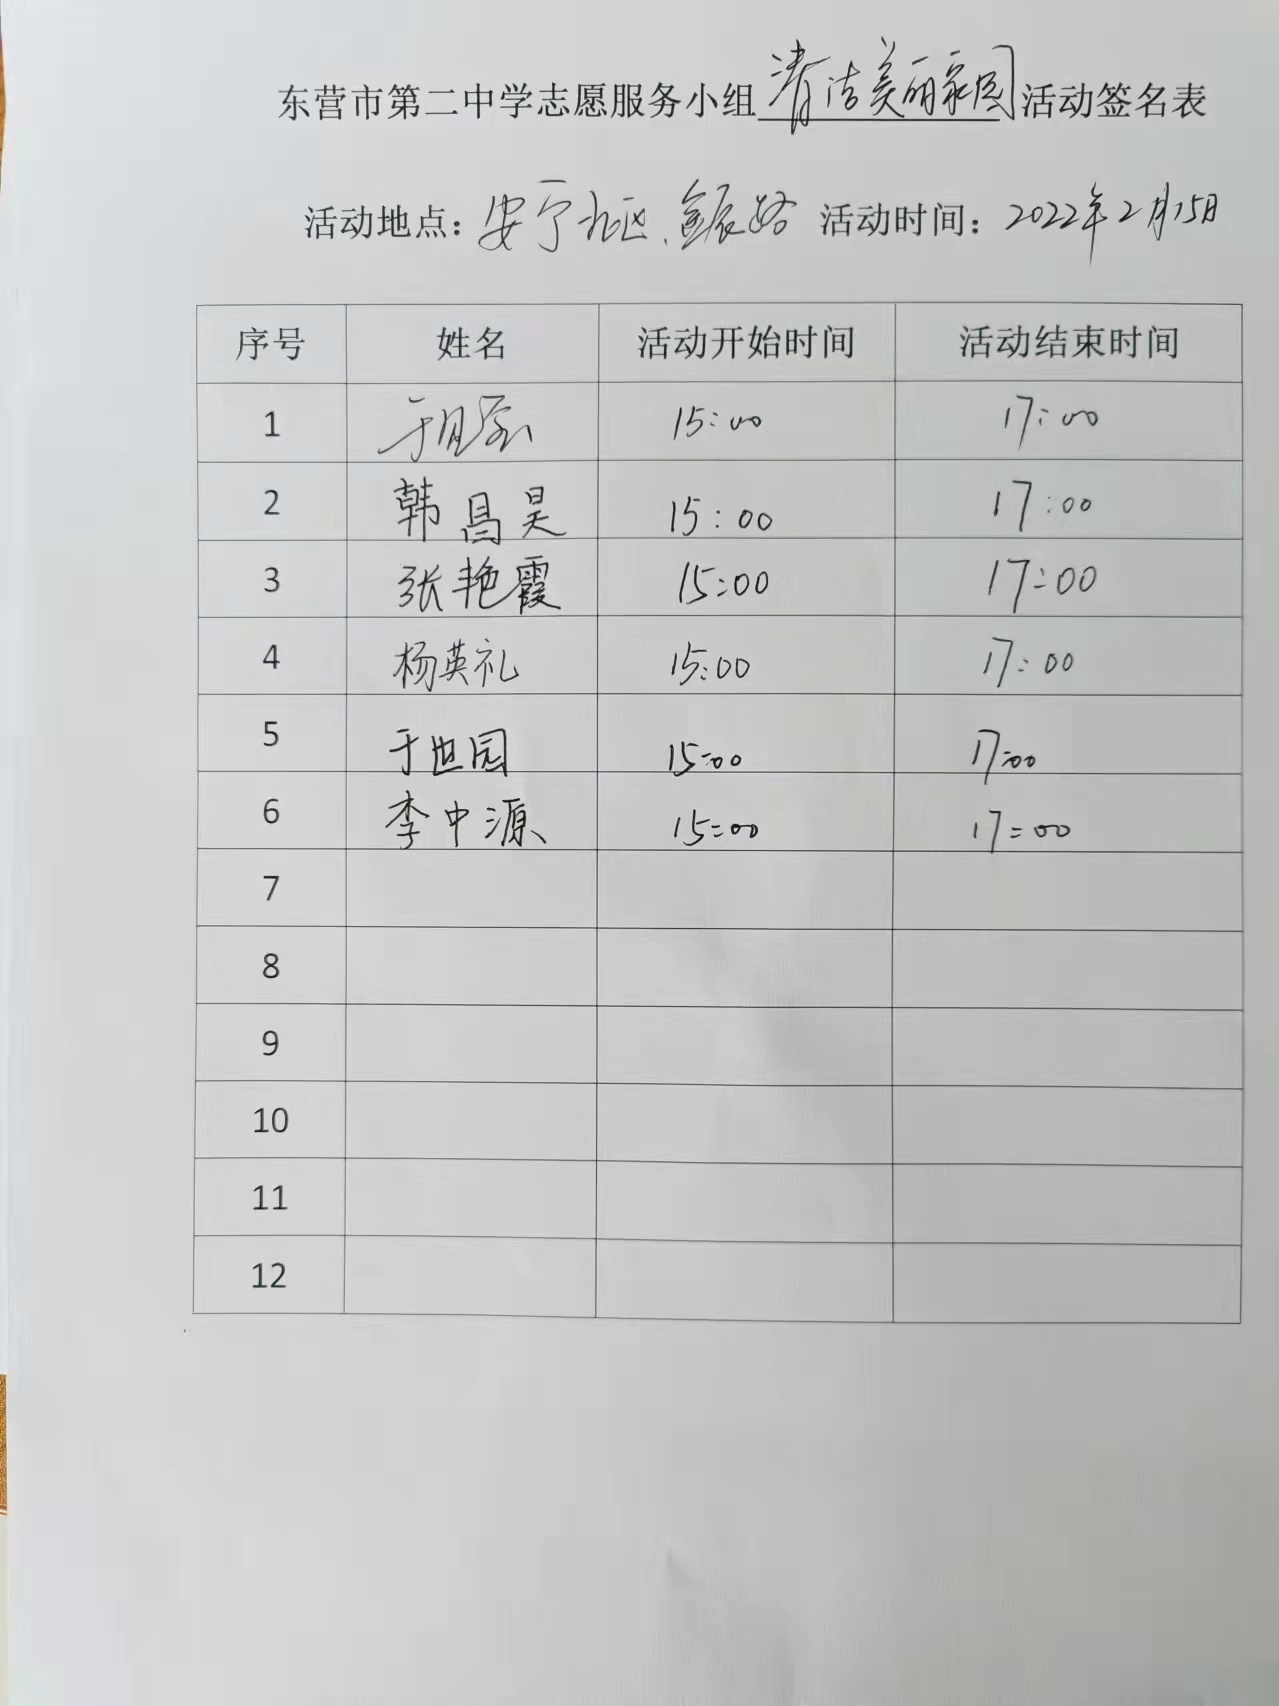 东营市第二中学志愿服务小组清洁美丽家园活动签名表
活动地点：安宁北区、金辰路 活动时间：2022年2月15日
序号 姓名 活动开始时间 活动结束时间
1 于 15:00 17:00
2 韩昌昊 15:00 17:00
3 张艳霞 15:00 17:00
4 杨英礼 15:00 17:00
5 于世园 15:00 17:00
6 李中源 15:00 17:00
7
8
9
10
11
12